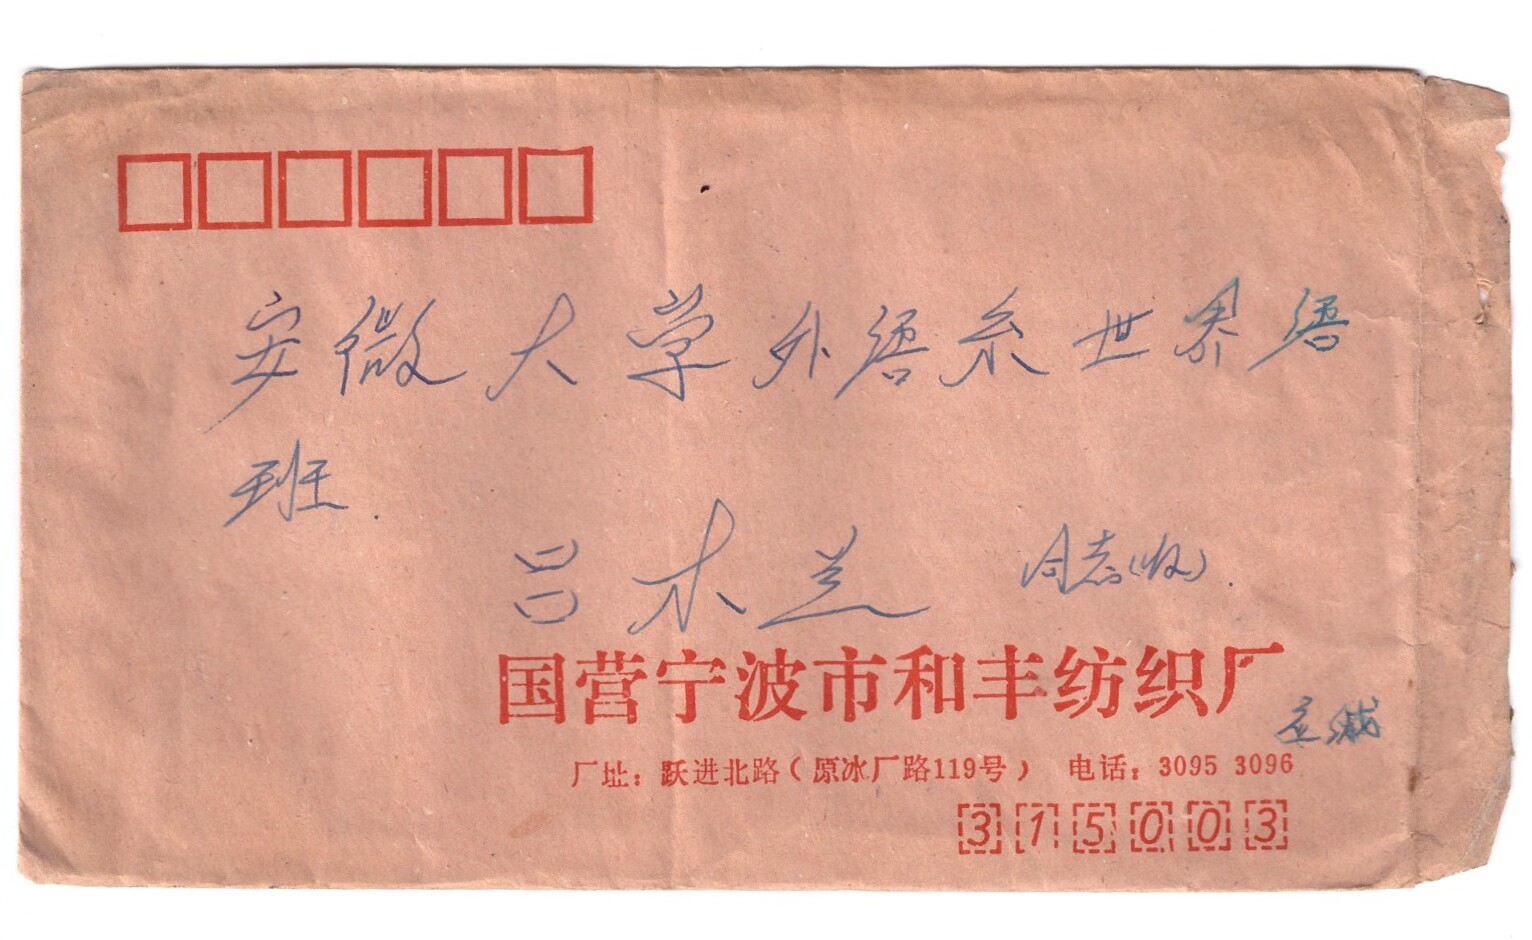 安微大学外语系世界语
班.
吕木兰 同志(收).
国营宁波市和丰纺织厂
应缄
厂址：跃进北路（原冰厂路119号） 电话：3095 3096
315003